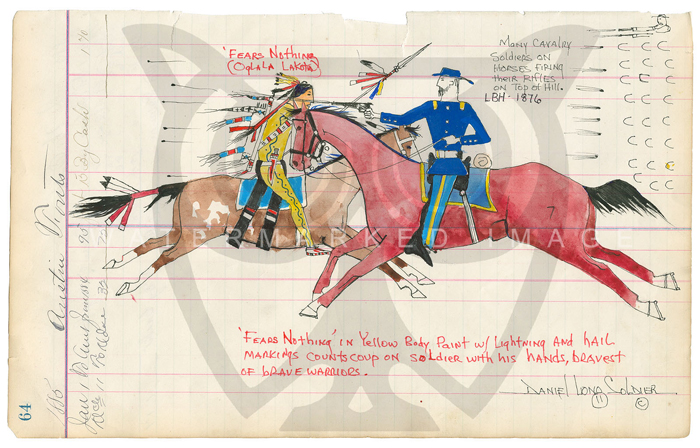 'FEARS NOTHING'
(OGLALA LAKOTA)
MANY CAVALRY
SOLDIERS ON
HORSES FIRING
THEIR RIFLES
ON TOP OF HILL.
LBH - 1876
WATERMARKED IMAGE
'FEARS NOTHING' IN YELLOW BODY PAINT W/ LIGHTNING AND HAIL
MARKINGS COUNTS COUP ON SOLDIER WITH HIS HANDS, BRAVEST
OF BRAVE WARRIORS.
DANIEL LONG SOLDIER
11 ©
64
Austin
Jan 1
Cash
7